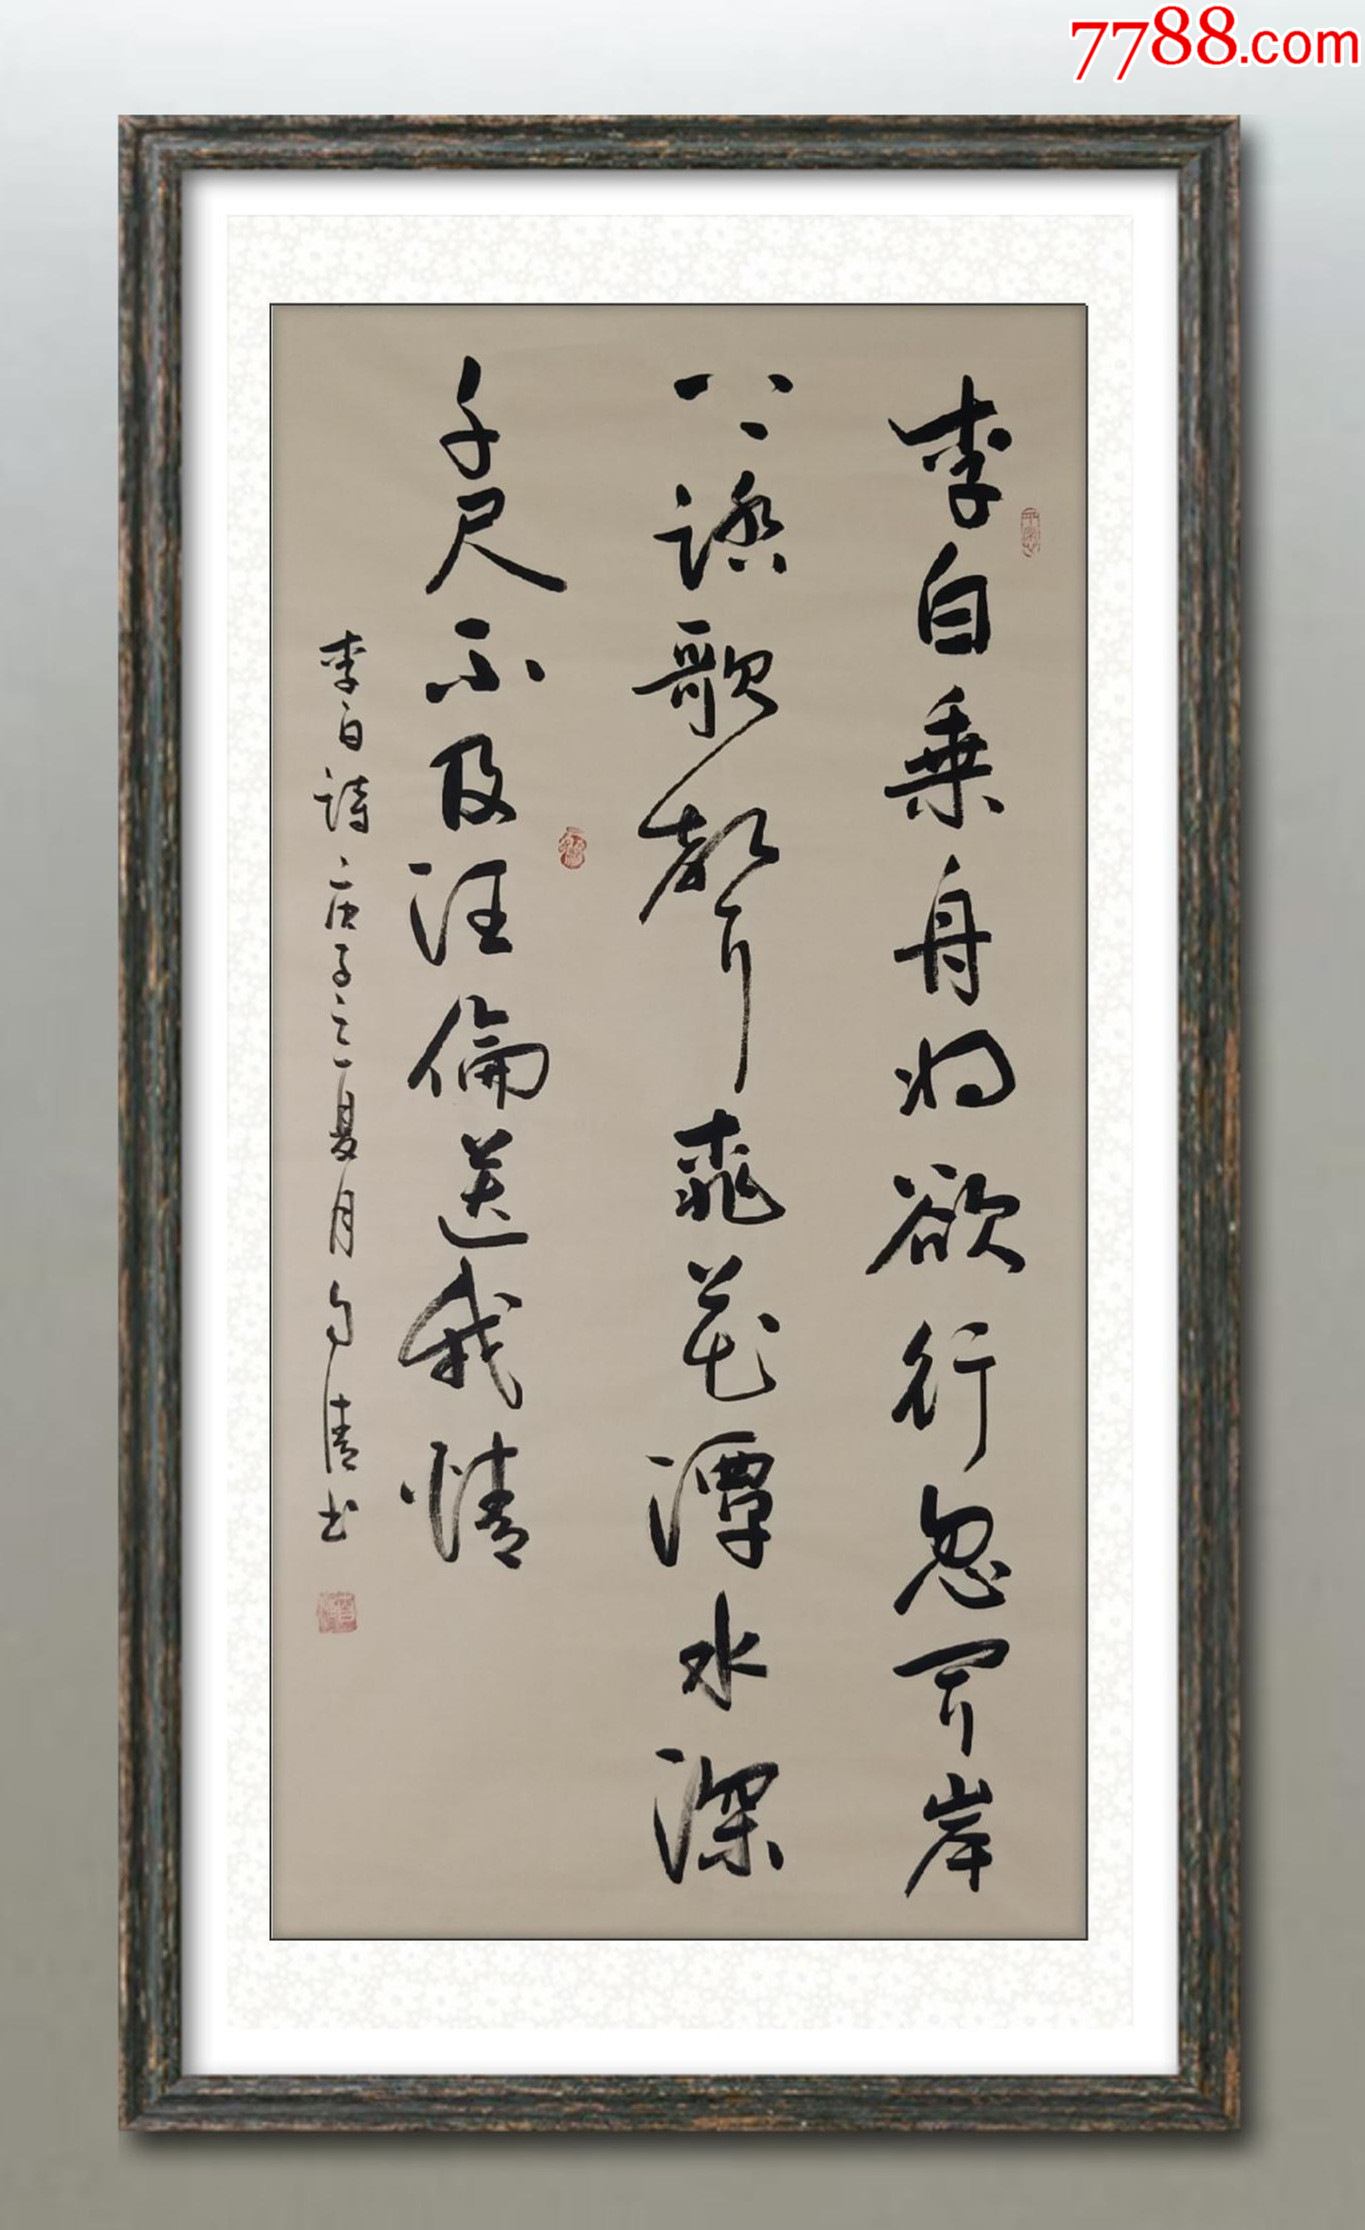 7788.com
李白乘舟将欲行忽闻岸
上踏歌聲桃花潭水深
千尺不及汪倫送我情
李白诗庚子之夏月清书